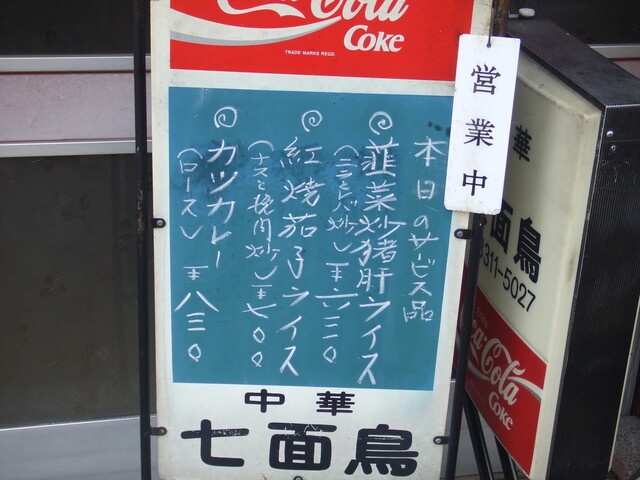 Coca-Cola
Coke
TRADE MARKS REGD.
営業中
本日のサービス品
韮菜炒猪肝ライス
(ニラレバ炒) ¥六三〇
紅焼茄子ライス
(ナスと挽肉炒) ¥七〇〇
カツカレー
(ロース) ¥八三〇
中華
七面鳥
華
面鳥
3311-5027
Coca-Cola
Coke